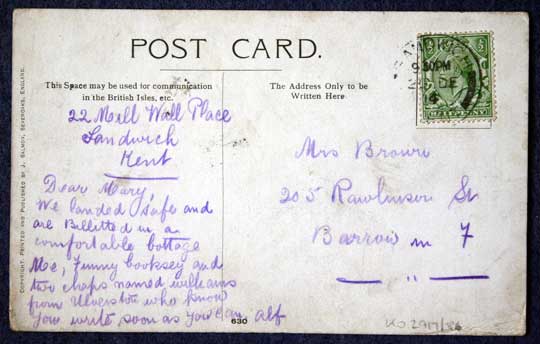 POST CARD.
This Space may be used for communication
in the British Isles, etc.
The Address Only to be
Written Here
22 Mill Wall Place
Sandwich
Kent
Dear Mary,
We landed safe and
are Billitted in a
comfortable cottage
Me, Tunny Cooksey and
two chaps named williams
from Ulverston who know
you write soon as you can alf
Mrs Brown
205 Rawlinson St
Barrow in F
COPYRIGHT. PRINTED AND PUBLISHED BY J. SALMON, SEVENOAKS, ENGLAND.
630
SANDWICH
9.30PM
DE
14
HALFPENNY